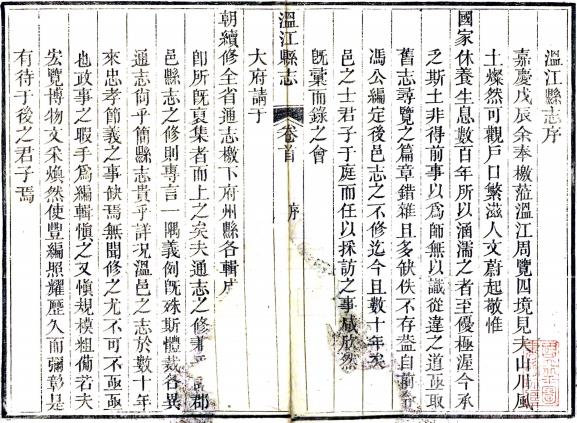 溫江縣志序
嘉慶戊辰余奉檄蒞溫江周覽四境見夫山川風
土燦然可觀戶口繁滋人文蔚起敬惟
國家休養生息數百年所以涵濡之者至優極渥今承
乏斯土非得前事以爲師無以識從違之道亟取
舊志尋覽之篇章錯雜且多缺佚不存葢自前令
馮公編定後邑志之不修迄今且數十年矣
邑之士君子于庭而任以採訪之事咸欣然
旣彙而錄之會
溫江縣志 卷首 序
大府請于
朝續修全省通志檄下府州縣各輯成
卽所旣夏集者而上之矣夫通志之修 郡
邑縣志之修則專言一隅義例旣殊斯體裁各異
通志尚乎簡縣志貴乎詳況溫邑之志於數十年
來忠孝節義之事缺焉無聞修之尤不可不亟亟
也政事之暇手爲編輯愼之又愼規模粗備若夫
宏覽博物文采煥然使豐編照耀歷久而彌彰是
有待于後之君子焉